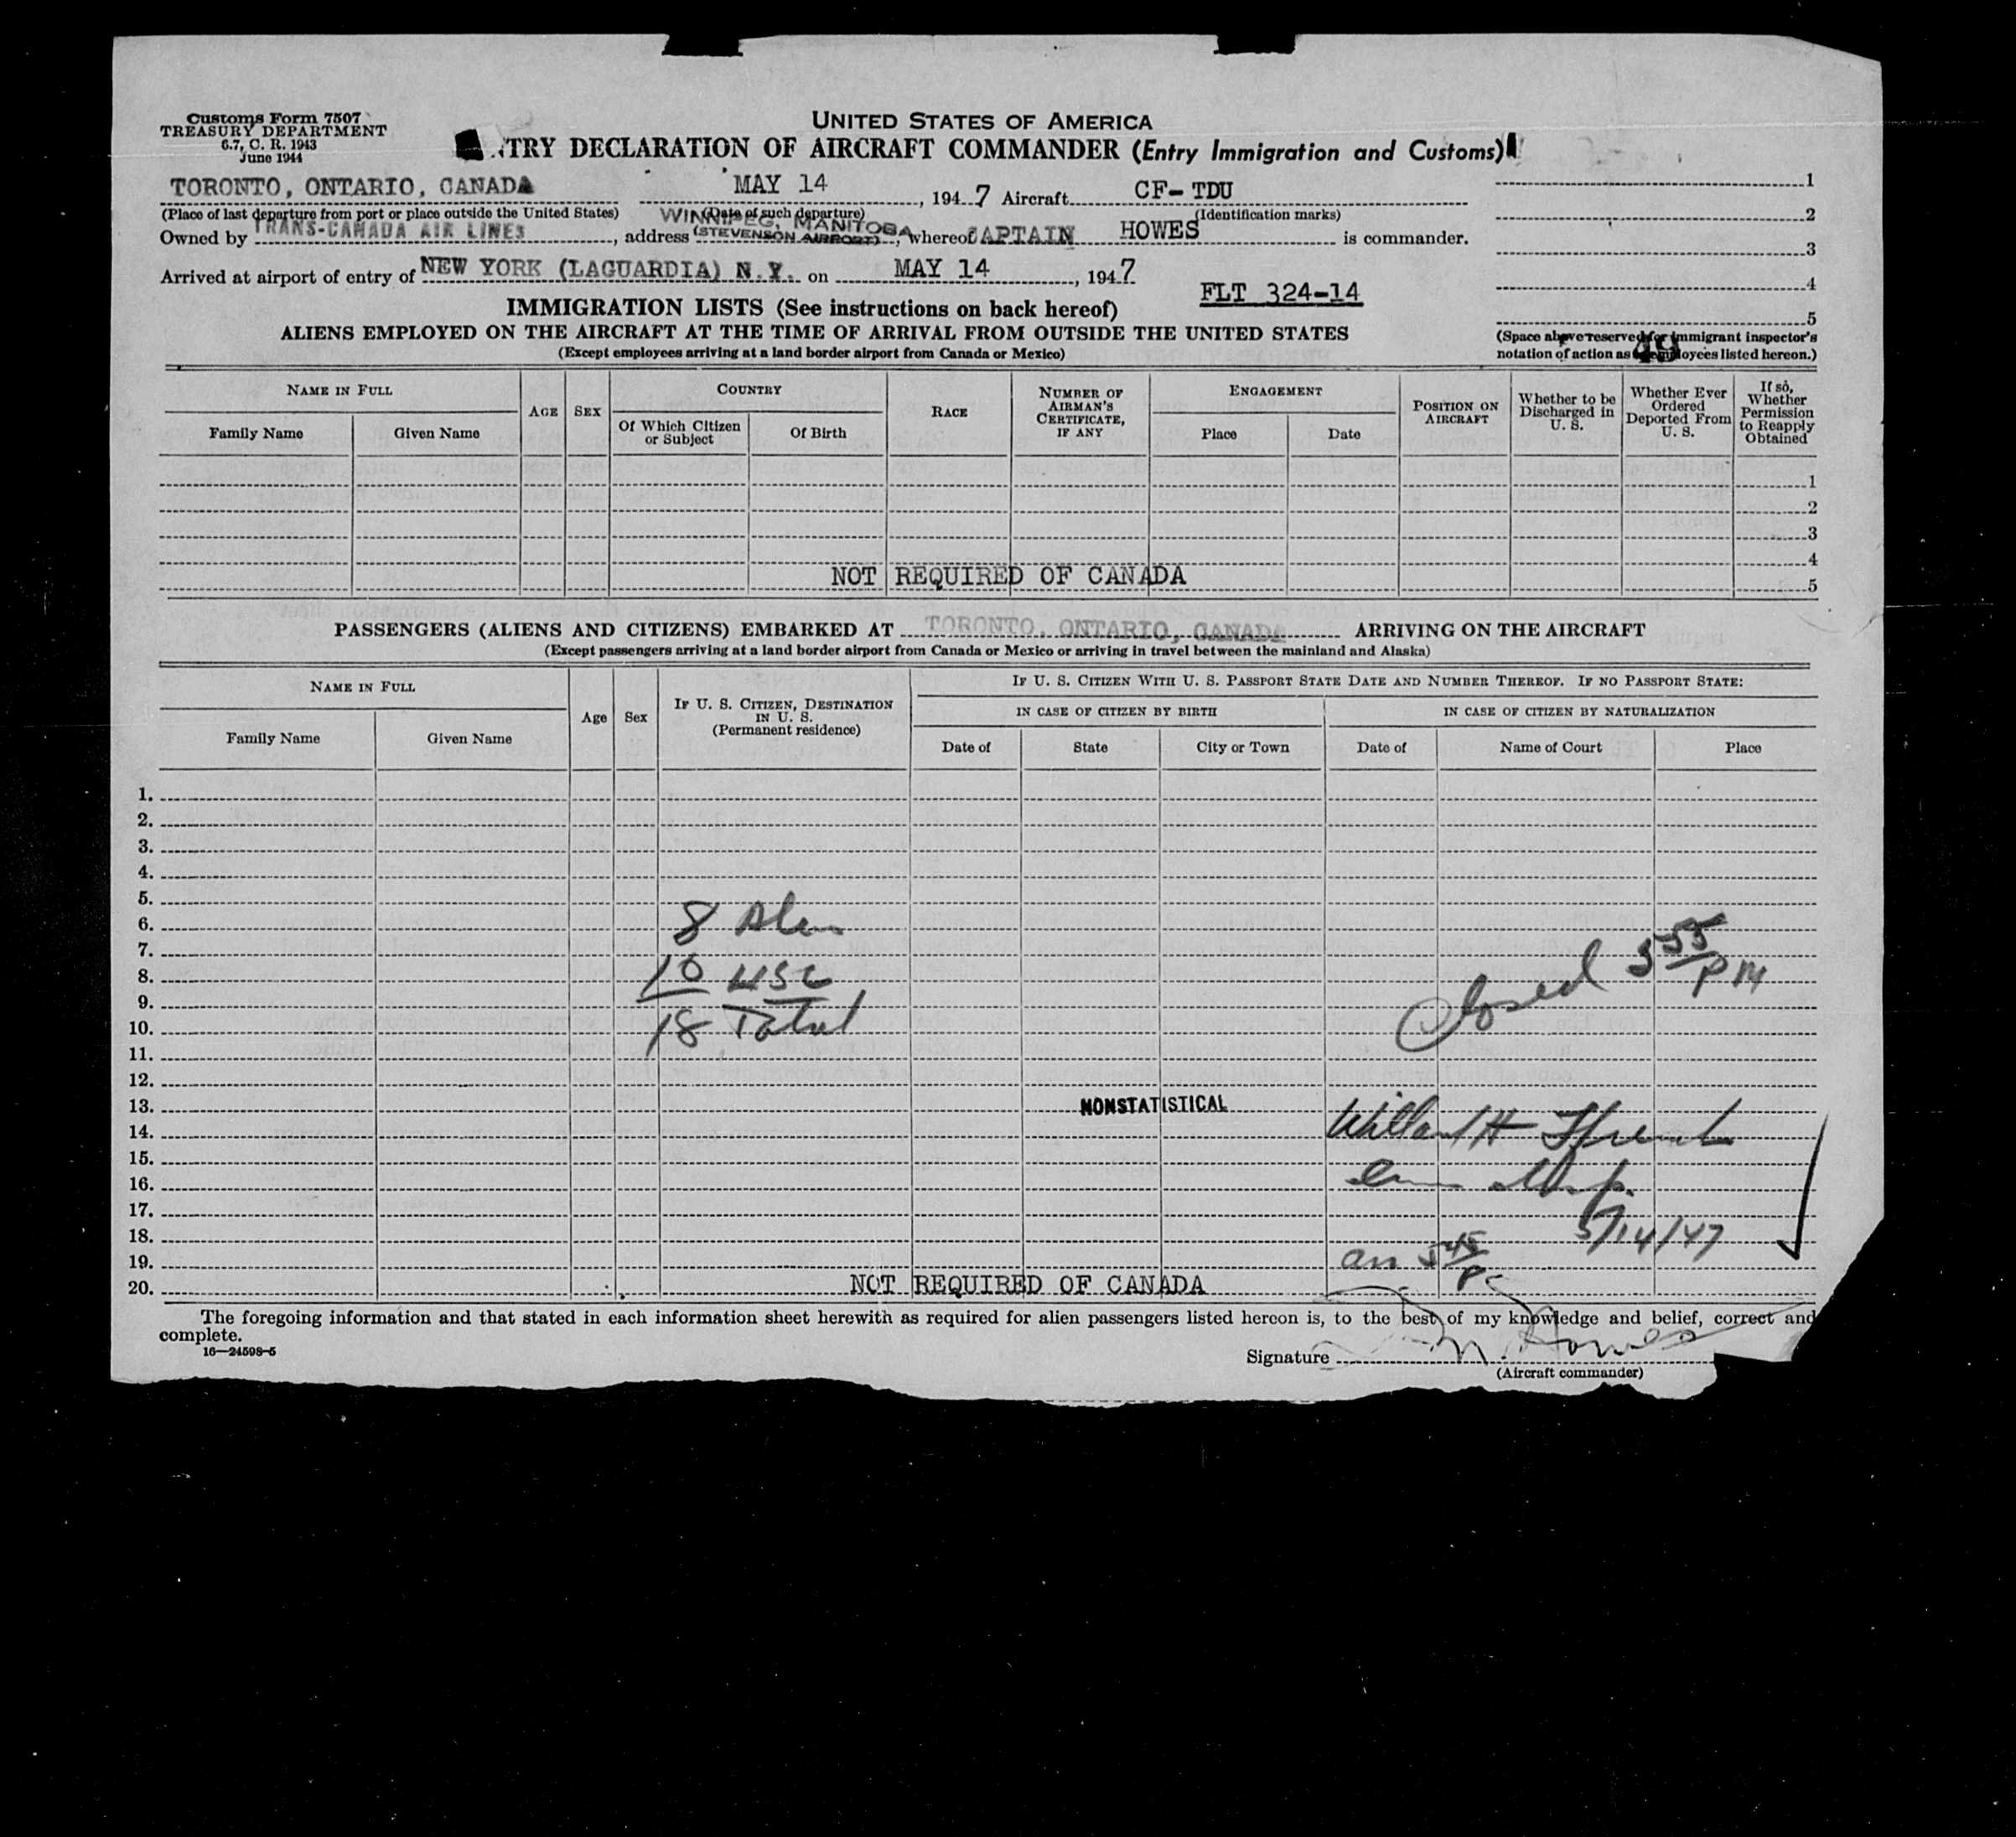 Customs Form 7507
TREASURY DEPARTMENT
6.7, C. R. 1943
June 1944
UNITED STATES OF AMERICA
TRY DECLARATION OF AIRCRAFT COMMANDER (Entry Immigration and Customs)
TORONTO, ONTARIO, CANADA MAY 14, 1947 Aircraft CF-TDU
(Place of last departure from port or place outside the United States) (Date of such departure) (Identification marks)
WINNIPEG, MANITOBA
Owned by TRANS-CANADA AIR LINES, address (STEVENSON AIRPORT), whereof CAPTAIN HOWES is commander.
Arrived at airport of entry of NEW YORK (LAGUARDIA) N.Y. on MAY 14, 1947
FLT 324-14
1
2
3
4
5
(Space above reserved for immigrant inspector's
notation of action as to employees listed hereon.)
49
IMMIGRATION LISTS (See instructions on back hereof)
ALIENS EMPLOYED ON THE AIRCRAFT AT THE TIME OF ARRIVAL FROM OUTSIDE THE UNITED STATES
(Except employees arriving at a land border airport from Canada or Mexico)
NAME IN FULL
Family Name
Given Name
AGE
SEX
COUNTRY
Of Which Citizen
or Subject
Of Birth
RACE
NUMBER OF
AIRMAN'S
CERTIFICATE,
IF ANY
ENGAGEMENT
Place
Date
POSITION ON
AIRCRAFT
Whether to be
Discharged in
U. S.
Whether Ever
Ordered
Deported From
U. S.
If so,
Whether
Permission
to Reapply
Obtained
1
2
3
4
5
NOT REQUIRED OF CANADA
PASSENGERS (ALIENS AND CITIZENS) EMBARKED AT TORONTO, ONTARIO, CANADA ARRIVING ON THE AIRCRAFT
(Except passengers arriving at a land border airport from Canada or Mexico or arriving in travel between the mainland and Alaska)
NAME IN FULL
Family Name
Given Name
Age
Sex
IF U. S. CITIZEN, DESTINATION
IN U. S.
(Permanent residence)
IF U. S. CITIZEN WITH U. S. PASSPORT STATE DATE AND NUMBER THEREOF. IF NO PASSPORT STATE:
IN CASE OF CITIZEN BY BIRTH
Date of
State
City or Town
IN CASE OF CITIZEN BY NATURALIZATION
Date of
Name of Court
Place
1.
2.
3.
4.
5.
6. 8
7.
8. 10 USC
9.
10. 18 Total
Closed 5 55 PM
11.
12.
13. NONSTATISTICAL
14. Willard H
15.
16.
17.
18. 5/14/47
19. 5 45
20. NOT REQUIRED OF CANADA
The foregoing information and that stated in each information sheet herewith as required for alien passengers listed hereon is, to the best of my knowledge and belief, correct and
complete.
16—24598-5
Signature Howes
(Aircraft commander)